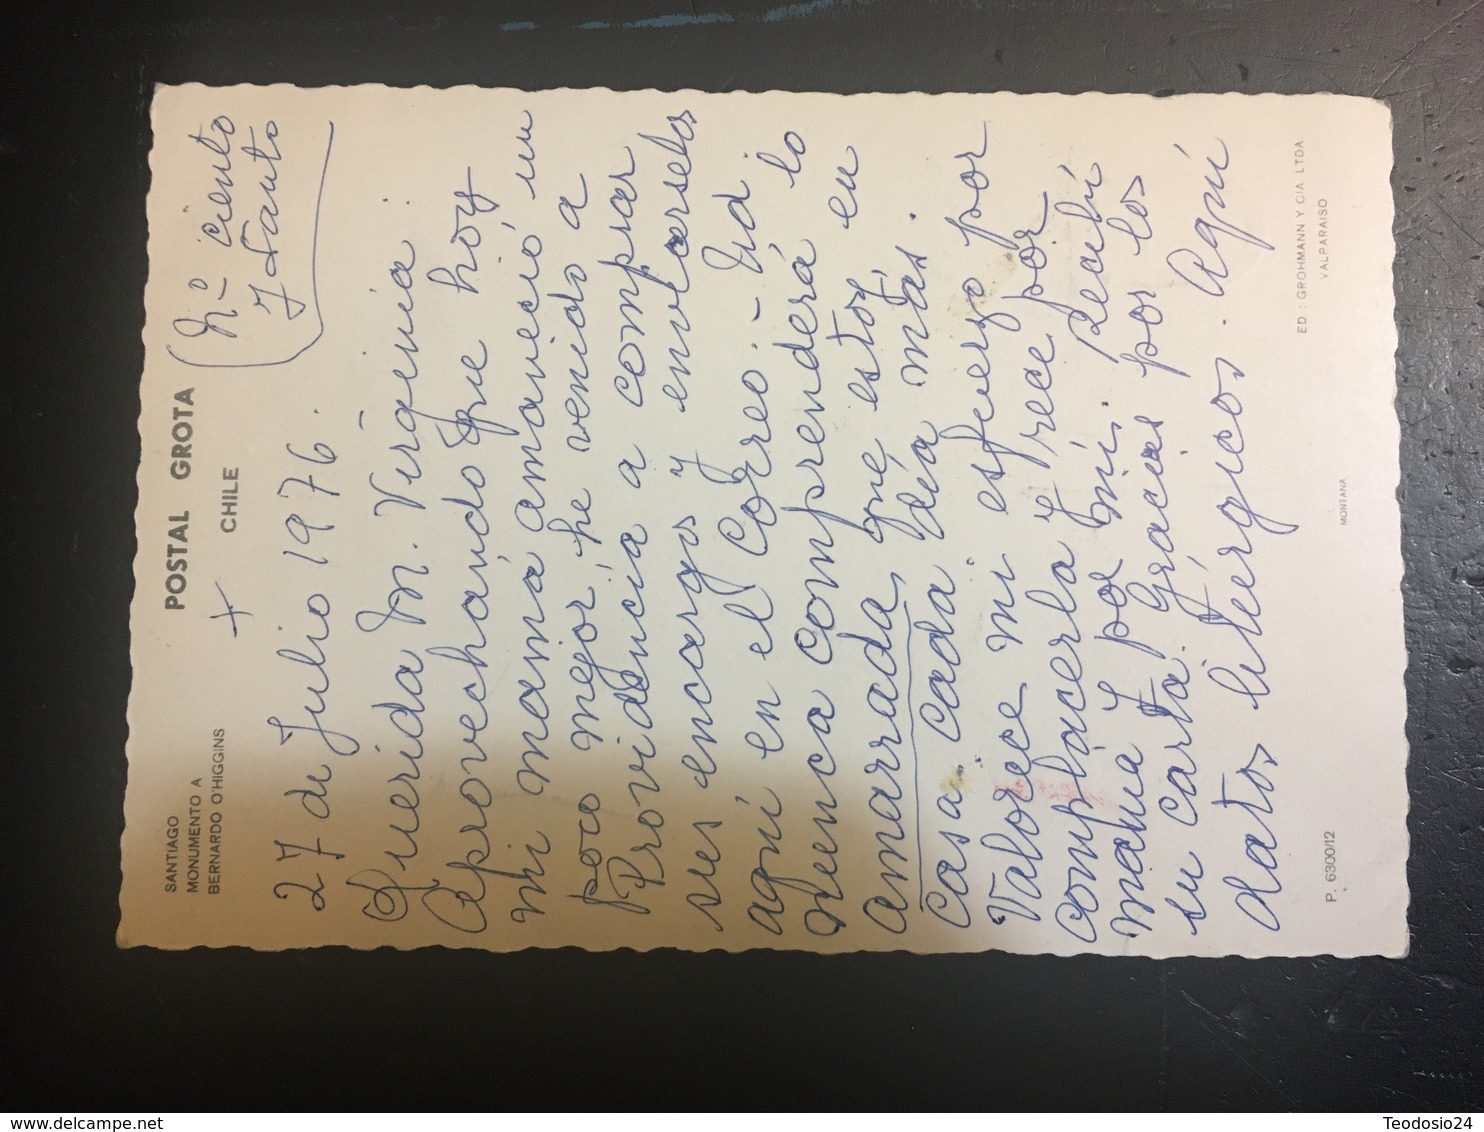 SANTIAGO
MONUMENTO A
BERNARDO O'HIGGINS
POSTAL GROTA
CHILE
+
Nº ciento
y tanto
27 de Julio 1976.
Querida M. Virginia:
Aprovechando que hoy
mi mamá amaneció un
poco mejor, he venido a
Providencia a comprar
sus encargos y enviárselos
aquí en el Correo. - Ud.
nunca comprenderá lo
amarrada que estoy en
casa cada día más.
Valore mi esfuerzo por
complacerla y rece por
mamá y por mí. Recibí
su carta. Gracias por los
datos litúrgicos. Aquí
P. 6300/12
MONTANA
ED : GROHMANN Y CIA. LTDA
VALPARAISO
Teodosio24